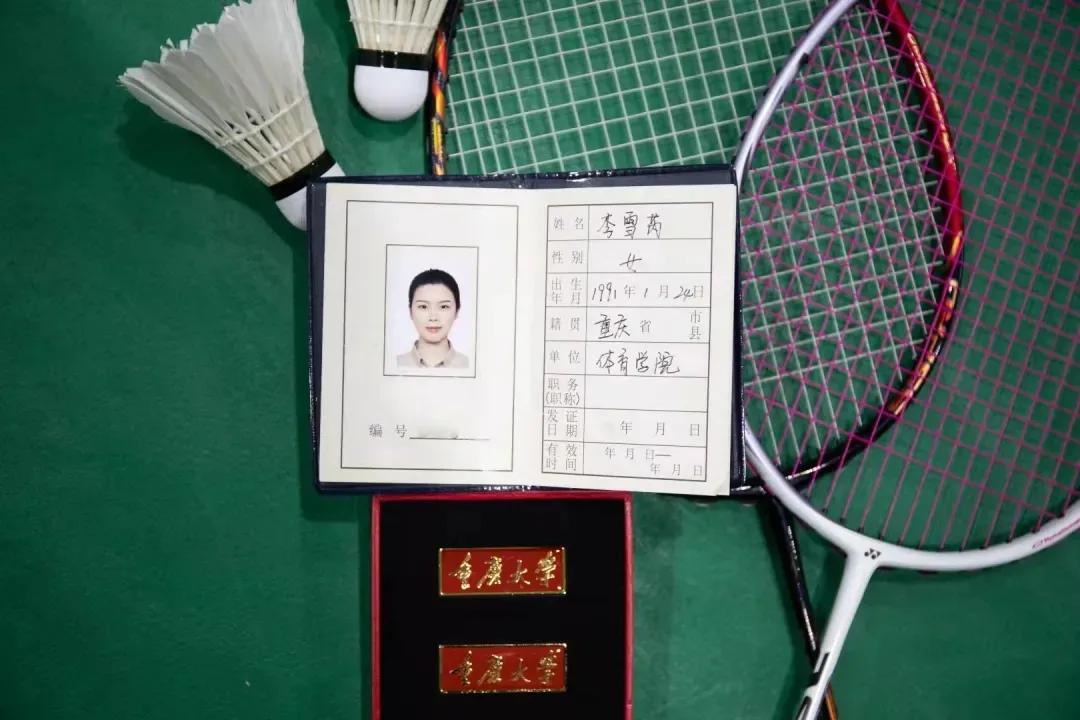 编 号
姓 名 李雪芮
性 别 女
出 生
年 月 1991年1月24日
籍 贯 重庆省 市
县
单 位 体育学院
职 务
(职称)
发 证
日 期 年 月 日
有 效
时 间 年 月 日—
年 月 日
重庆大学
重庆大学